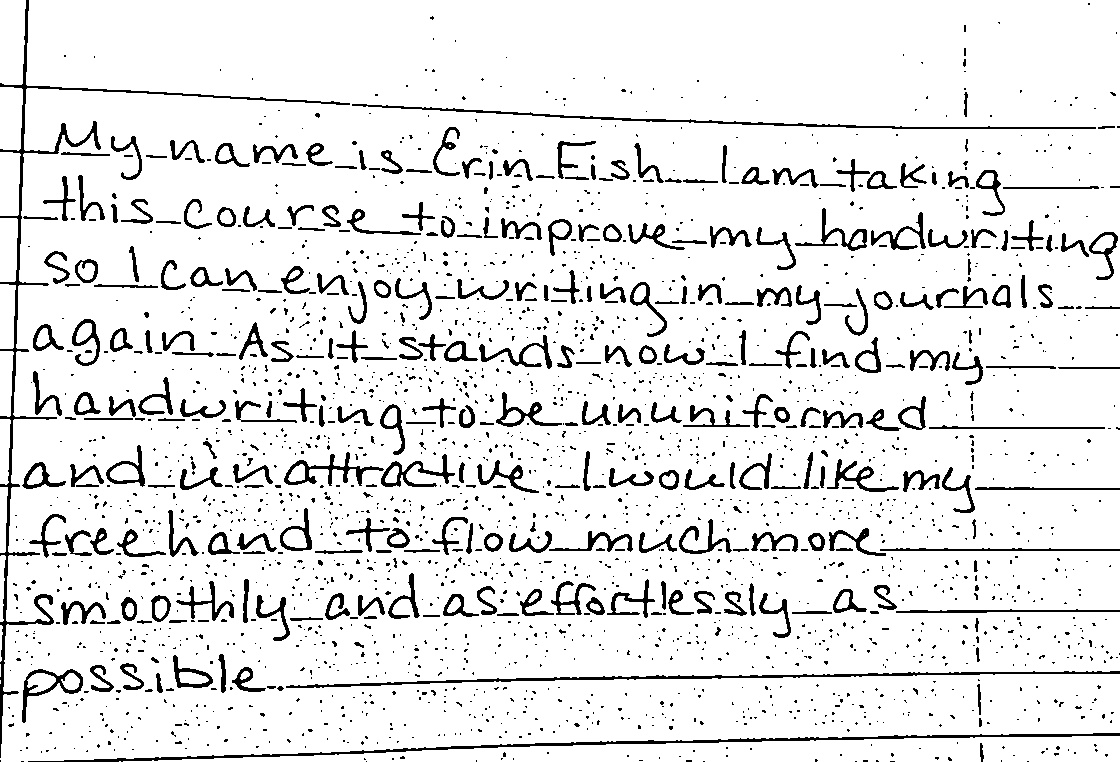 My name is Erin Fish I am taking
this course to improve my handwriting
so I can enjoy writing in my journals
again. As it stands now I find my
handwriting to be ununiformed
and unattractive. I would like my
free hand to flow much more
smoothly and as effortlessly as
possible.